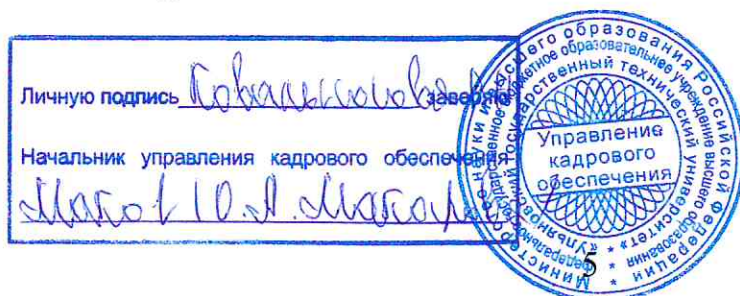 Личную подпись заверяю
Начальник управления кадрового обеспечения
Ю.А. Макова
Министерство науки и высшего образования Российской Федерации
Федеральное государственное бюджетное образовательное учреждение высшего образования
«Ульяновский государственный технический университет»
Управление
кадрового
обеспечения
5